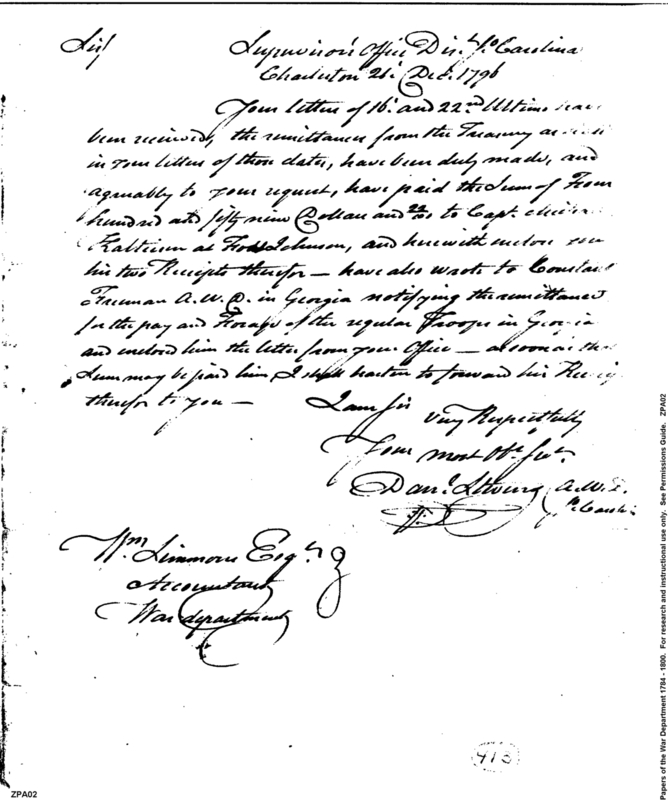 Sir/ Supervisor's Office Dist. So. Carolina
Charleston 21st Decr. 1796
Your letters of 16th and 22nd Ultimo have
been received, the remittances from the Treasury
in your letters of those dates, have been duly made, and
agreeably to your request, have paid the Sum of Four
hundred and fifty nine Dollars and to Capt.
Kalteisen at Fort Johnson, and herewith inclose you
his two Receipts therefor — have also wrote to Constant
Freeman A.W.D. in Georgia notifying the remittance
for the pay and Forage of the regular Troops in Georgia
and inclosed him the letter from your Office — as soon as the
Sum may be paid him, I shall hasten to forward his
therefor to you —
I am Sir
very Respectfully
Your most Obt. Servt.
Danl. Stevens A.W.D.
So. Carolin
Wm. Simmons Esqr.
Accountant
War department
413
ZPA02
Papers of the War Department 1784 - 1800. For research and instructional use only. See Permissions Guide. ZPA02